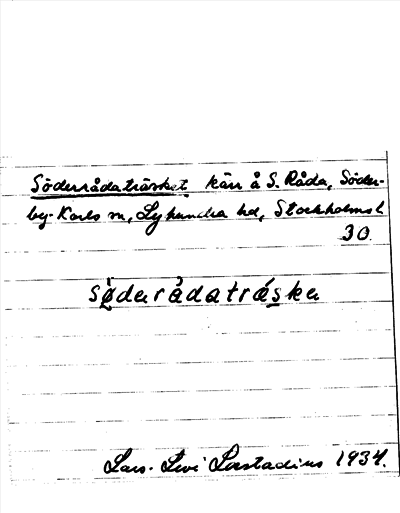 Söderrådaträsket kärr å S. Råda, Söder-
by-Karls sn, Lyhundra hd, Stockholms l.
30.
södərådaträskə
Lars-Levi Læstadius 1934.